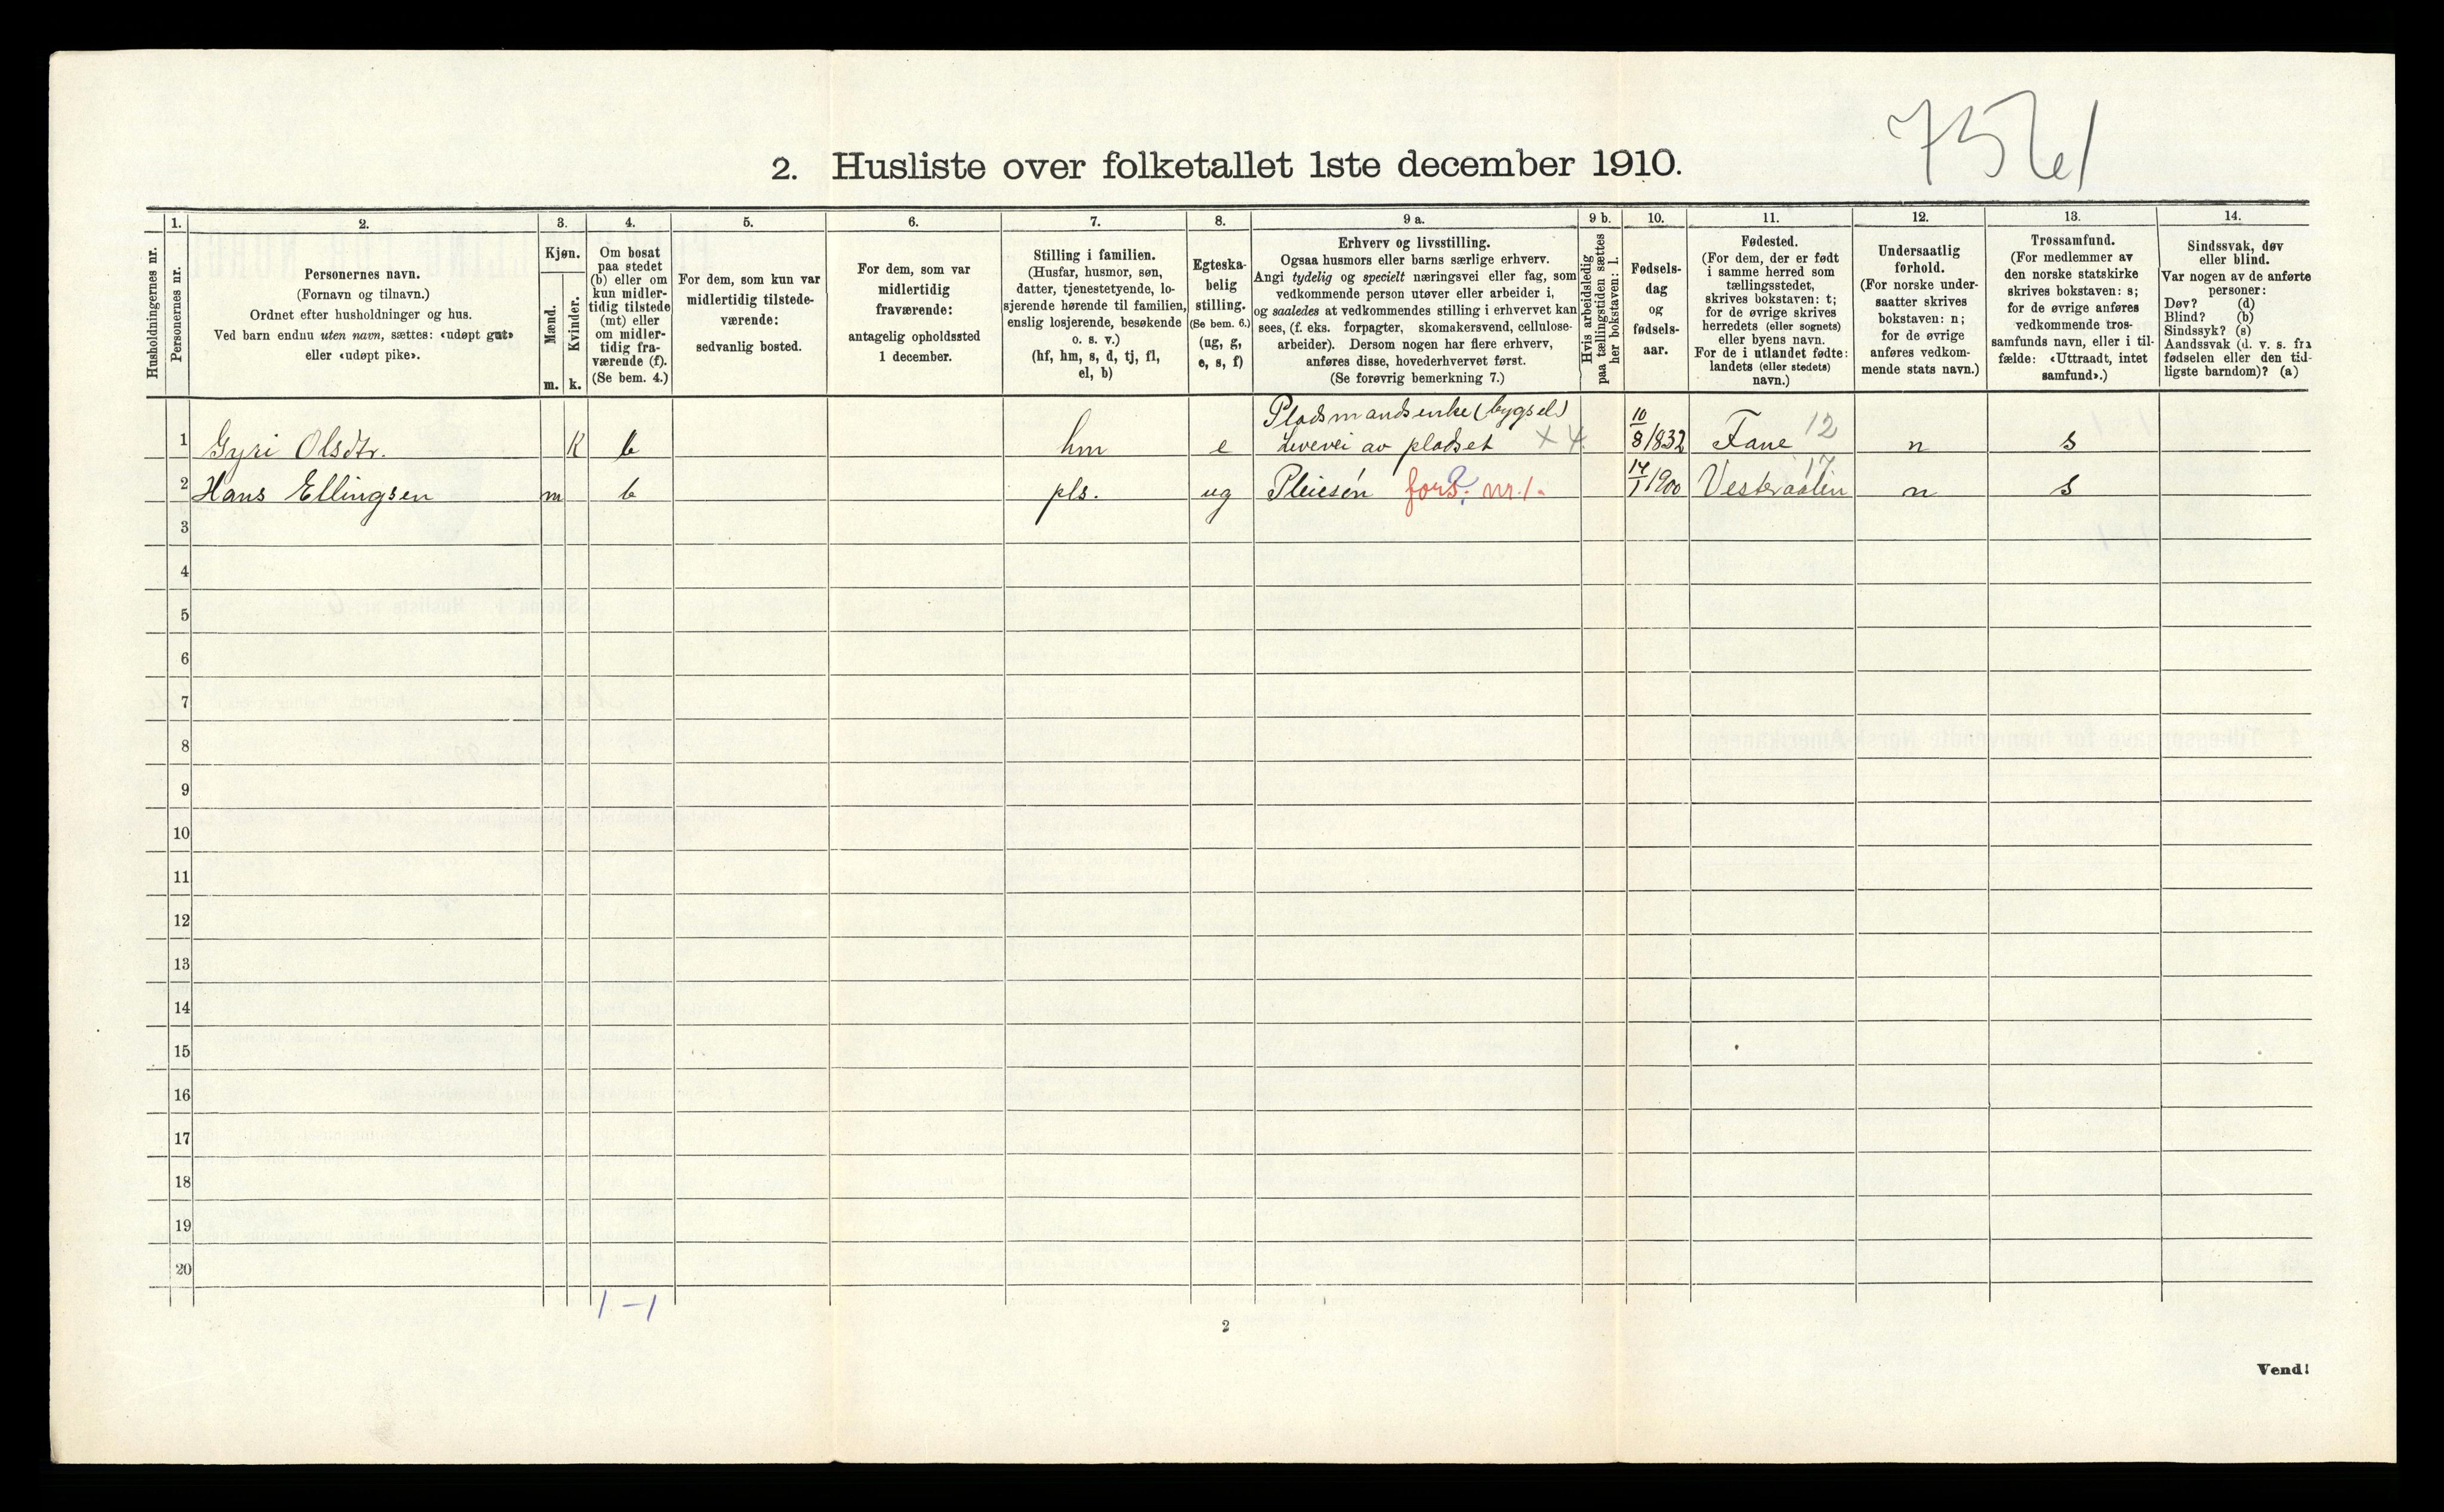 7561
2. Husliste over folketallet 1ste december 1910.
Husholdningernes nr.
1.
Personernes nr.
2.
Personernes navn.
(Fornavn og tilnavn.)
Ordnet efter husholdninger og hus.
Ved barn endnu uten navn, sættes: «udøpt gut»
eller «udøpt pike».
3.
Kjøn.
Mænd.
m.
Kvinder.
k.
4.
Om bosat
paa stedet
(b) eller om
kun midler-
tidig tilstede
(mt) eller
om midler-
tidig fra-
værende (f).
(Se bem. 4.)
5.
For dem, som kun var
midlertidig tilstede-
værende:
sedvanlig bosted.
6.
For dem, som var
midlertidig
fraværende:
antagelig opholdssted
1 december.
7.
Stilling i familien.
(Husfar, husmor, søn,
datter, tjenestetyende, lo-
sjerende hørende til familien,
enslig losjerende, besøkende
o. s. v.)
(hf, hm, s, d, tj, fl,
el, b)
8.
Egteska-
belig
stilling.
(Se bem. 6.)
(ug, g,
e, s, f)
9 a.
Erhverv og livsstilling.
Ogsaa husmors eller barns særlige erhverv.
Angi tydelig og specielt næringsvei eller fag, som
vedkommende person utøver eller arbeider i,
og saaledes at vedkommendes stilling i erhvervet kan
sees, (f. eks. forpagter, skomakersvend, cellulose-
arbeider). Dersom nogen har flere erhverv,
anføres disse, hovederhvervet først.
(Se forøvrig bemerkning 7.)
9 b.
Hvis arbeidsledig
paa tællingstiden sættes
her bokstaven: l.
10.
Fødsels-
dag
og
fødsels-
aar.
11.
Fødested.
(For dem, der er født
i samme herred som
tællingsstedet,
skrives bokstaven: t;
for de øvrige skrives
herredets (eller sognets)
eller byens navn.
For de i utlandet fødte:
landets (eller stedets)
navn.)
12.
Undersaatlig
forhold.
(For norske under-
saatter skrives
bokstaven: n;
for de øvrige
anføres vedkom-
mende stats navn.)
13.
Trossamfund.
(For medlemmer av
den norske statskirke
skrives bokstaven: s;
for de øvrige anføres
vedkommende tros-
samfunds navn, eller i til-
fælde: «Uttraadt, intet
samfund».)
14.
Sindssvak, døv
eller blind.
Var nogen av de anførte
personer:
Døv? (d)
Blind? (b)
Sindssyk? (s)
Aandssvak (d. v. s. fra
fødselen eller den tid-
ligste barndom)? (a)
Pladsmandsenke (bygsel)
1 Gyri Olsdtr. K b hm e Levevei av pladset x 4. 10/8 1832 Fane 12 n s
2 Hans Ellingsen m b pls. ug Pleiesøn fors. nr. 1. 14/1 1900 Vesteraalen 17 n s
3
4
5
6
7
8
9
10
11
12
13
14
15
16
17
18
19
20
1 - 1
2
Vend!